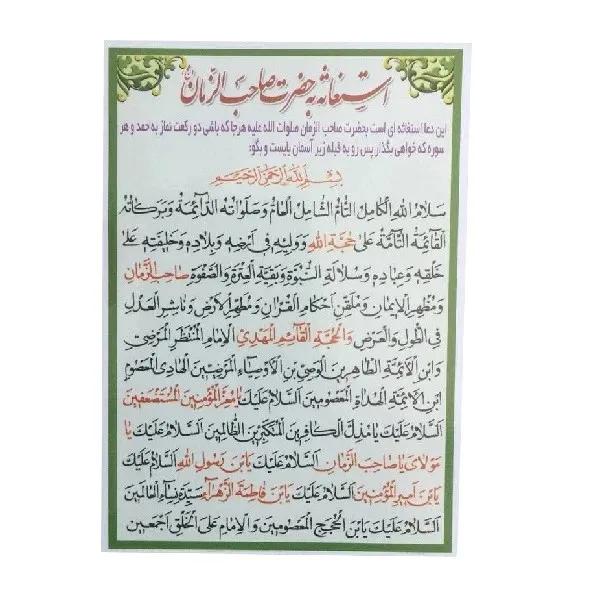 استغاثه به حضرت صاحب الزمان
این دعا استغاثه ای است بحضرت صاحب الزمان صلوات الله علیه هرجا که باشی دو رکعت نماز به حمد و هر
سوره که خواهی بگذار پس رو به قبله زیر آسمان بایست و بگو:
بِسْمِ اللهِ الرَّحْمٰنِ الرَّحیمِ
سَلامُ اللهِ الْکامِلُ التّامُّ الشّامِلُ الْعامُّ وَ صَلَواتُهُ الدّائِمَةُ وَ بَرَکاتُهُ
الْقائِمَةُ التّامَّةُ عَلیٰ حُجَّةِ اللهِ وَ وَلِیِّهِ فی اَرْضِهِ وَ بِلادِهِ وَ خَلیفَتِهِ عَلیٰ
خَلْقِهِ وَ عِبادِهِ وَ سُلالَةِ النُّبُوَّةِ وَ بَقِیَّةِ الْعِتْرَةِ وَ الصَّفْوَةِ صاحِبِ الزَّمانِ
وَ مُظْهِرِ الْایمانِ وَ مُلَقِّنِ اَحْکامِ الْقُرْانِ وَ مُطَهِّرِ الْاَرْضِ وَ ناشِرِ الْعَدْلِ
فِی الطُّولِ وَ الْعَرْضِ وَ الْحُجَّةِ الْقائِمِ الْمَهْدِیِّ الْاِمامِ الْمُنْتَظَرِ الْمَرْضِیِّ
وَ ابْنِ الْاَئِمَّةِ الطّاهِرینَ الْوَصِیِّ بْنِ الْاَوْصِیاءِ الْمَرْضِیّینَ الْهادِی الْمَعْصُومِ
ابْنِ الْاَئِمَّةِ الْهُداةِ الْمَعْصُومینَ اَلسَّلامُ عَلَیْکَ یا مُعِزَّ الْمُؤْمِنینَ الْمُسْتَضْعَفینَ
اَلسَّلامُ عَلَیْکَ یا مُذِلَّ الْکافِرینَ الْمُتَکَبِّرینَ الظّالِمینَ اَلسَّلامُ عَلَیْکَ یا
مَوْلایَ یا صاحِبَ الزَّمانِ اَلسَّلامُ عَلَیْکَ یَابْنَ رَسُولِ اللهِ اَلسَّلامُ عَلَیْکَ
یَابْنَ اَمیرِ الْمُؤْمِنینَ اَلسَّلامُ عَلَیْکَ یَابْنَ فاطِمَةَ الزَّهْراءِ سَیِّدَةِ نِساءِ الْعالَمینَ
اَلسَّلامُ عَلَیْکَ یَابْنَ الْحُجَجِ الْمَعْصُومینَ وَ الْاِمامِ عَلَی الْخَلْقِ اَجْمَعینَ